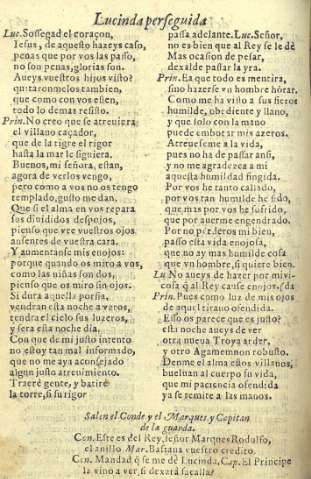 Lucinda perseguida
Luc. Sossegad el coraçon,
Iesus, de aquesto hazeys caso,
penas que por vos las passo,
no son penas, glorias son.
Aueys vuestros hijos visto?
quitaronmelos tambien,
que como con vos esten,
todo lo demas resisto.
Prin. No creo que se atreuiera
el villano caçador,
que de la tigre el rigor
hasta la mar le siguiera.
Buenos, mi señora, estan,
agora de verlos vengo,
pero como a vos no os tengo
templado, gusto me dan.
Que si el alma en vos repara
sus diuididos despojos,
pienso que veen vuestros ojos
ausentes de vuestra cara.
Y aumentanse mis enojos:
porque quando os miro a vos,
como las niñas son dos,
pienso que os miro sin ojos.
Si dura aquella porfia,
vendran esta noche a veros,
tendra el cielo sus luzeros,
y sera esta noche dia.
Con que de mi justo intento
no estoy tan mal informado,
que no me aya aconsejado
algun justo atreuimento.
Traerè gente, y batirè
la torre, si su rigor
passa adelante. Luc. Señor,
no es bien que al Rey se le dè
Mas ocasion de pesar,
dexalde passar la yra.
Prin. Ea que todo es mentira,
sino hazerse vn hombre hòrar.
Como me ha visto a sus fieros
humilde, obediente y llano,
y que solo con la mano
puede embotar mis azeros.
Atreueseme a la vida,
pues no ha de passar ansi,
y no me agradezca a mi
aquesta humildad fingida.
Por vos he tanto callado,
por vos tan humilde he sido,
que mas por vos he sufrido,
que por auerme engendrado.
Por no perderos mi bien,
passo esta vida enojosa,
que no ay mas humilde cosa
que vn hombre, si quiere bien.
Lu No aueys de hazer por mi vi-
cosa q̃ al Rey cause enojos. (da
Prin. Pues como luz de mis ojos
de aquel tirano ofendida.
Esso os parece que es justo?
esta noche aueys de ver
otra nueua Troya arder,
y otro Agamemnon robusto.
Denme el alma estos villanos,
bueluan al cuerpo su vida,
que mi paciencia ofendida
ya se remite a las manos.
Salen el Conde y el Marques y Capitan
de la guarda.
Con. Este es del Rey, señor Marques Rodulfo,
el anillo Mar. Bastaua vuestro credito.
Con. Mandad q̃ se me dè Lucinda, Cap. El Principe
la vino a ver, si dexarà sacalla?